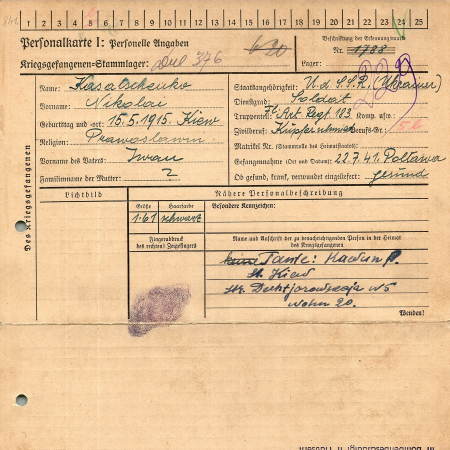 1 2 3 4 5 6 7 8 9 10 11 12 13 14 15 16 17 18 19 20 21 22 23 24 25
Personalkarte I: Personelle Angaben
Kriegsgefangenen-Stammlager: Dul 346
Beschriftung der Erkennungsmarke
Nr. 1788
Lager:
Des Kriegsgefangenen
Name: Kasatschenko
Vorname: Nikolai
Geburtstag und -ort: 15.5.1915. Kiew
Religion:
Vorname des Vaters: Iwan
Familienname der Mutter: ?
Staatsangehörigkeit: U.d.S.S.R. (Ukrainer)
Dienstgrad: Soldat
Truppenteil: Art. Regt 183 Komp. usw.:
Zivilberuf: Kupferschmied Berufs-Gr.:
Matrikel Nr. (Stammrolle des Heimatstaates):
Gefangennahme (Ort und Datum): 22.7.41. Poltawa
Ob gesund, krank, verwundet eingeliefert: gesund
Lichtbild
Nähere Personalbeschreibung
Größe
Haarfarbe
Besondere Kennzeichen:
1.61
schwarz
Fingerabdruck
des rechten Zeigefingers
Name und Anschrift der zu benachrichtigenden Person in der Heimat
des Kriegsgefangenen
Tante:
Kiew
N5
20.
Wenden!